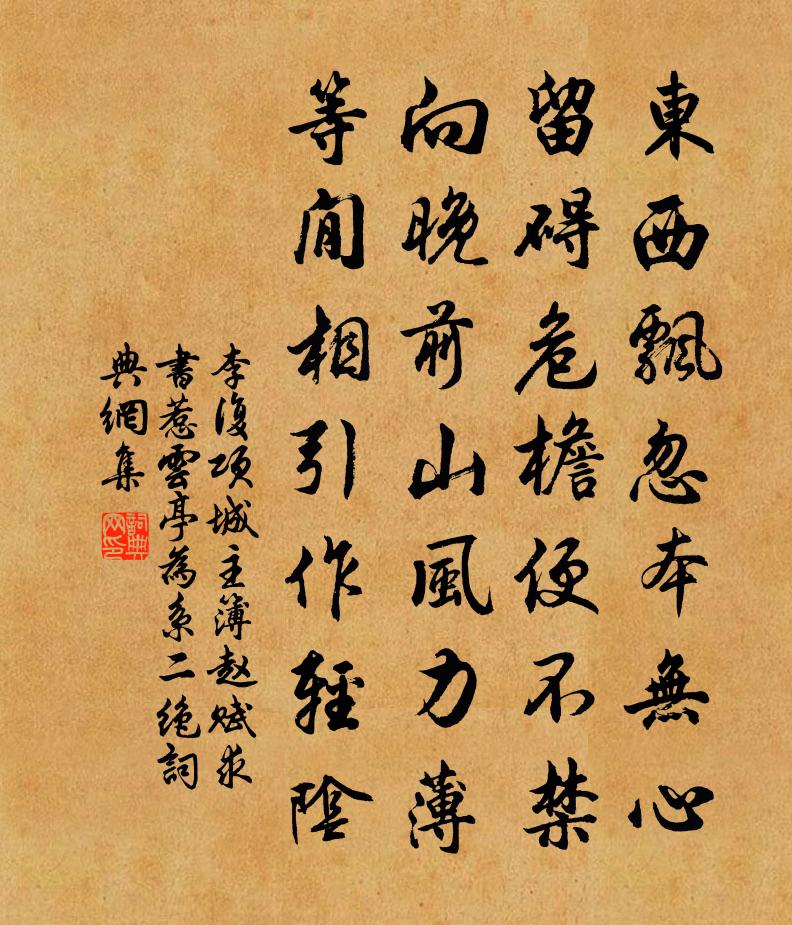 東西飄忽本無心
留碍危檐便不禁
向晚前山風力薄
等閒相引作輕陰
李復項城主簿趙賦求
書惹雲亭為系二絶詞
典網集
詞典
网印